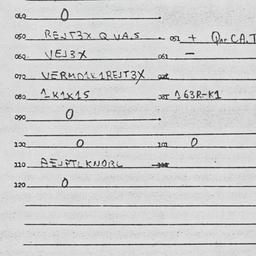 040 0
050 REJT3X Q VA.S 051 + Qnr CA.T
060 VEJ3X 061 —
072 VERMO1K1REJT3X
080 1K1X15 1 63R-K1
090 0
100 0 101 0
110 AEJFTLKNORL
120 0